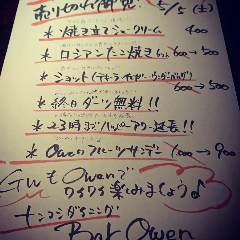 5/5 (土)
* 焼き立てシュークリーム 400
* ロシアンたこ焼き 600→500
* ショット 600→500
* 終日ダーツ無料!!
* 23時までハッピーアワー延長!!
* Owenフルーツサンデー 1000→900
GWもOwenで
ワクワク楽しみましょう♪
ナンコシダイニング
Bar Owen